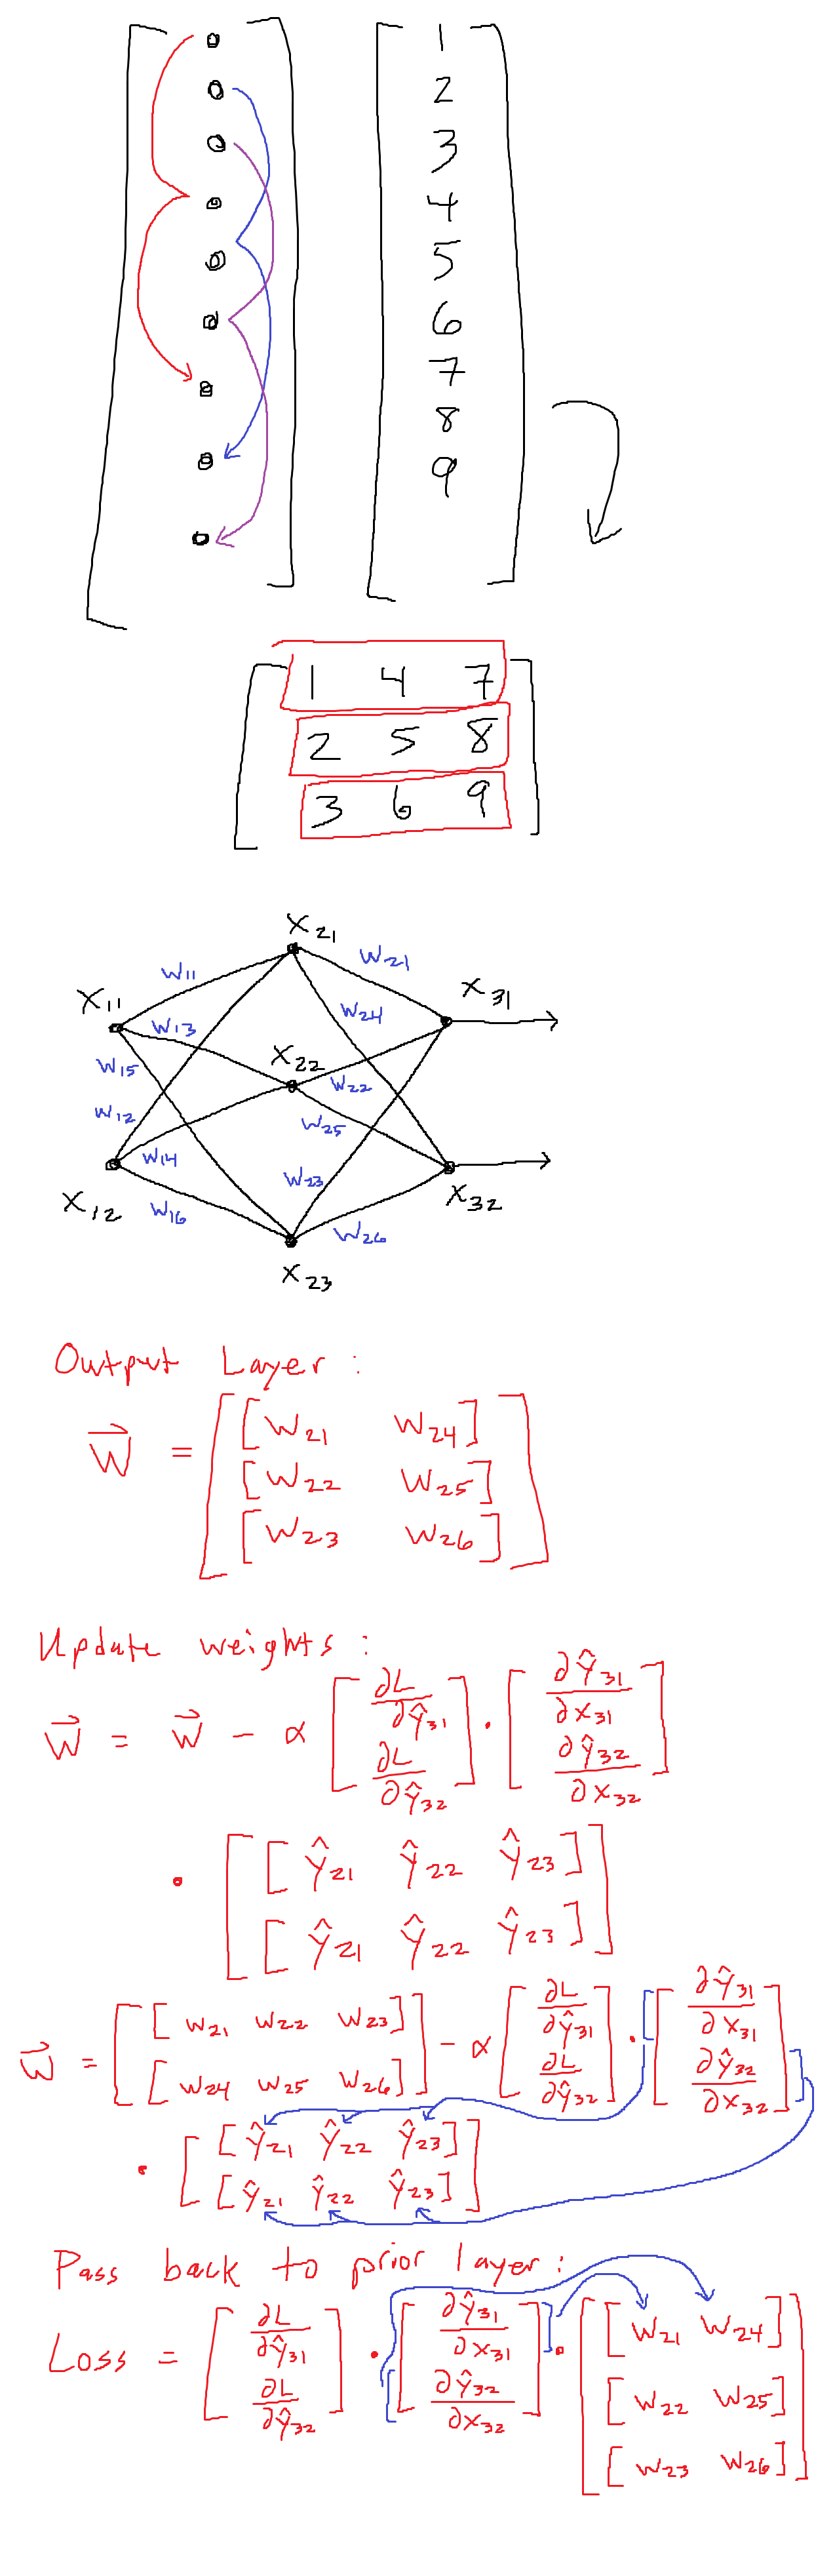 1
2
3
4
5
6
7
8
9
1 4 7
2 5 8
3 6 9
X21
W11 W21
X11 X31
W13 W24
X22
W15 W22
W12 W25
W14 W23
X12 W16 X32
W26
X23
Output Layer:
W = [[W21 W24]
[W22 W25]
[W23 W26]]
Update weights:
W = W - α [∂L/∂Ŷ31 ∂L/∂Ŷ32] · [∂Ŷ31/∂X31 ∂Ŷ32/∂X32]
· [[Ŷ21 Ŷ22 Ŷ23]
[Ŷ21 Ŷ22 Ŷ23]]
W = [[W21 W22 W23] [W24 W25 W26]] - α [∂L/∂Ŷ31 ∂L/∂Ŷ32] · [∂Ŷ31/∂X31 ∂Ŷ32/∂X32]
· [[Ŷ21 Ŷ22 Ŷ23]
[Ŷ21 Ŷ22 Ŷ23]]
Pass back to prior layer:
Loss = [∂L/∂Ŷ31 ∂L/∂Ŷ32] · [∂Ŷ31/∂X31 ∂Ŷ32/∂X32] · [[W21 W24] [W22 W25] [W23 W26]]